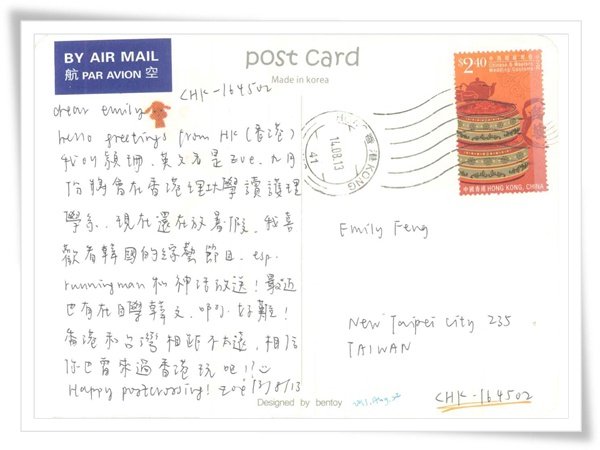 BY AIR MAIL
航 PAR AVION 空
post card
Made in korea
$2.40
Chinese & Western
Wedding Customs
中國香港 HONG KONG, CHINA
香港 HONG KONG
14.08.13
41
CHK-164502
dear emily,
hello greetings from HK (香港)
我叫穎珊, 英文名是Zoe. 九月
份將會在香港理工大學讀護理
學系. 現在還在放暑假. 我喜
歡看韓國的綜藝節目. esp.
runningman 和神話放送! 最近
也有在自學韓文, 好難!
香港和台灣相距不太遠, 相信
你也曾來過香港玩吧!!
Happy postcrossing! Zoe 12/8/13
Emily Feng
New Taipei City 235
TAIWAN
Designed by bentoy
CHK-164502